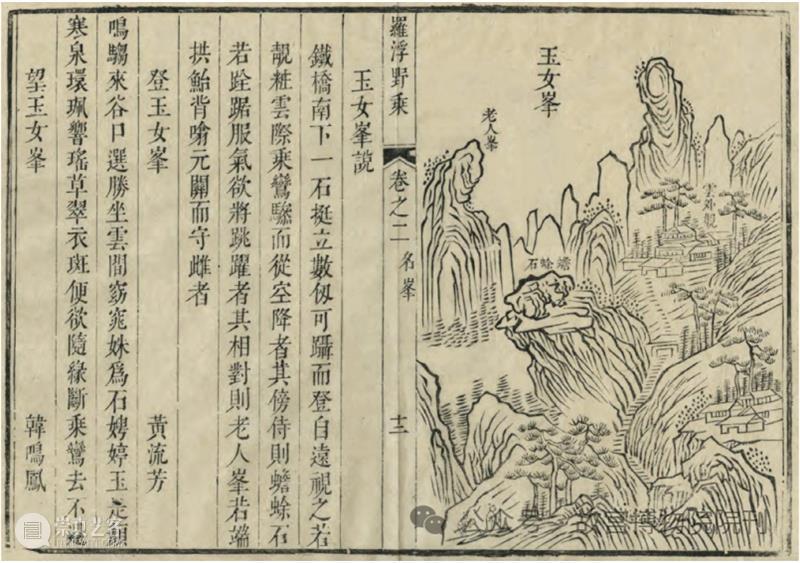 玉女峯
老人峯
雲外觀
蟾蜍石
羅浮野乘
卷之二
名峯
十二
玉女峯說
鐵橋南下一石挺立數仭可躡而登自遠視之若
靚粧雲際乘鸞驂而從空降者其傍侍則蟾蜍石
若跧踞服氣欲將跳躍者其相對則老人峯若端
拱鮐背噏元關而守雌者
登玉女峯 黃流芳
鳴騶來谷口選勝坐雲間窈窕姝爲石娉婷玉是顏
寒泉環珮響瑤草翠衣斑便欲隨緣斷乘鸞去不
望玉女峯 韓鳴鳳
公众号 · 故宫博物院院刊